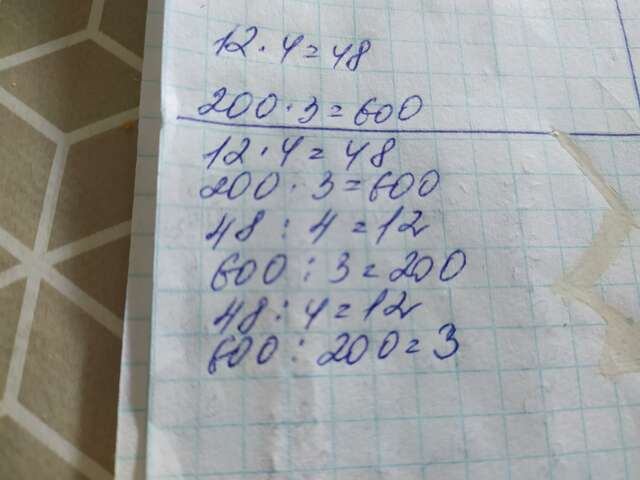 12 · 4 = 48
200 · 3 = 600
12 · 4 = 48
200 · 3 = 600
48 : 4 = 12
600 : 3 = 200
48 : 4 = 12
600 : 200 = 3